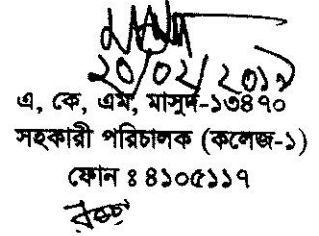 ২০/০২/২০১৯
এ, কে, এম, মাসুদ-১৩৪৭০
সহকারী পরিচালক (কলেজ-১)
ফোন ঃ ৪১০৫১১৭